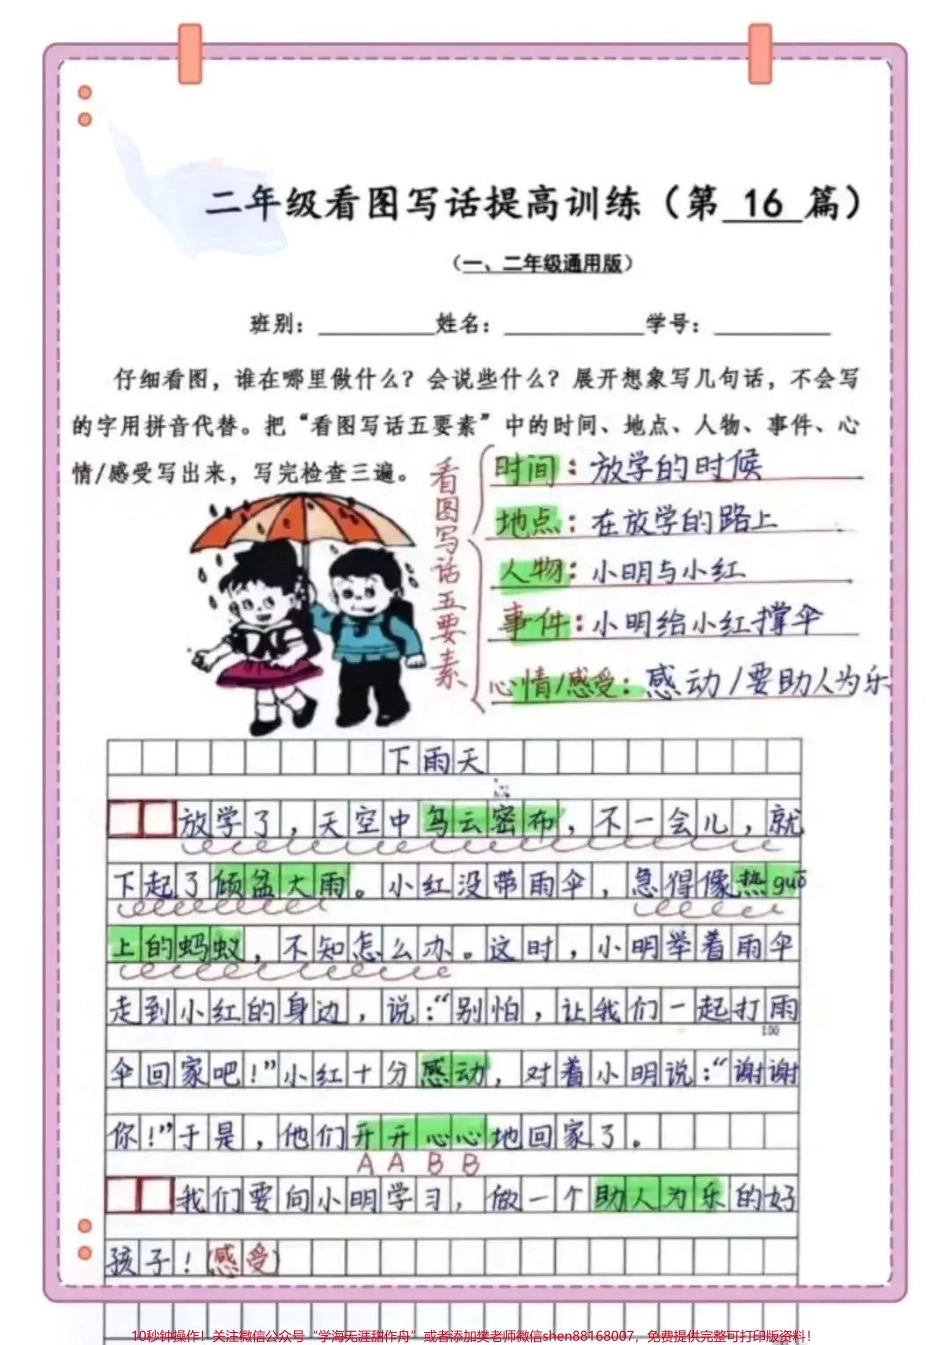 二年级看图写话提高训练（第 16 篇）
（一、二年级通用版）
班别：________姓名：__________学号：________
仔细看图，谁在哪里做什么？会说些什么？展开想象写几句话，不会写
的字用拼音代替。把“看图写话五要素”中的时间、地点、人物、事件、心
情/感受写出来，写完检查三遍。
看图写话五要素
时间：放学的时候
地点：在放学的路上
人物：小明与小红
事件：小明给小红撑伞
心情/感受：感动/要助人为乐
下雨天
放学了，天空中乌云密布，不一会儿，就
下起了倾盆大雨。小红没带雨伞，急得像热guō
上的蚂蚁，不知怎么办。这时，小明举着雨伞
走到小红的身边，说：“别怕，让我们一起打雨
100
伞回家吧！”小红十分感动，对着小明说：“谢谢
你！”于是，他们开开心心地回家了。
A A B B
我们要向小明学习，做一个助人为乐的好
孩子！（感受）
10秒钟操作！关注微信公众号“学海无涯甜作舟”或者添加樊老师微信shen88168007，免费提供完整可打印版资料！